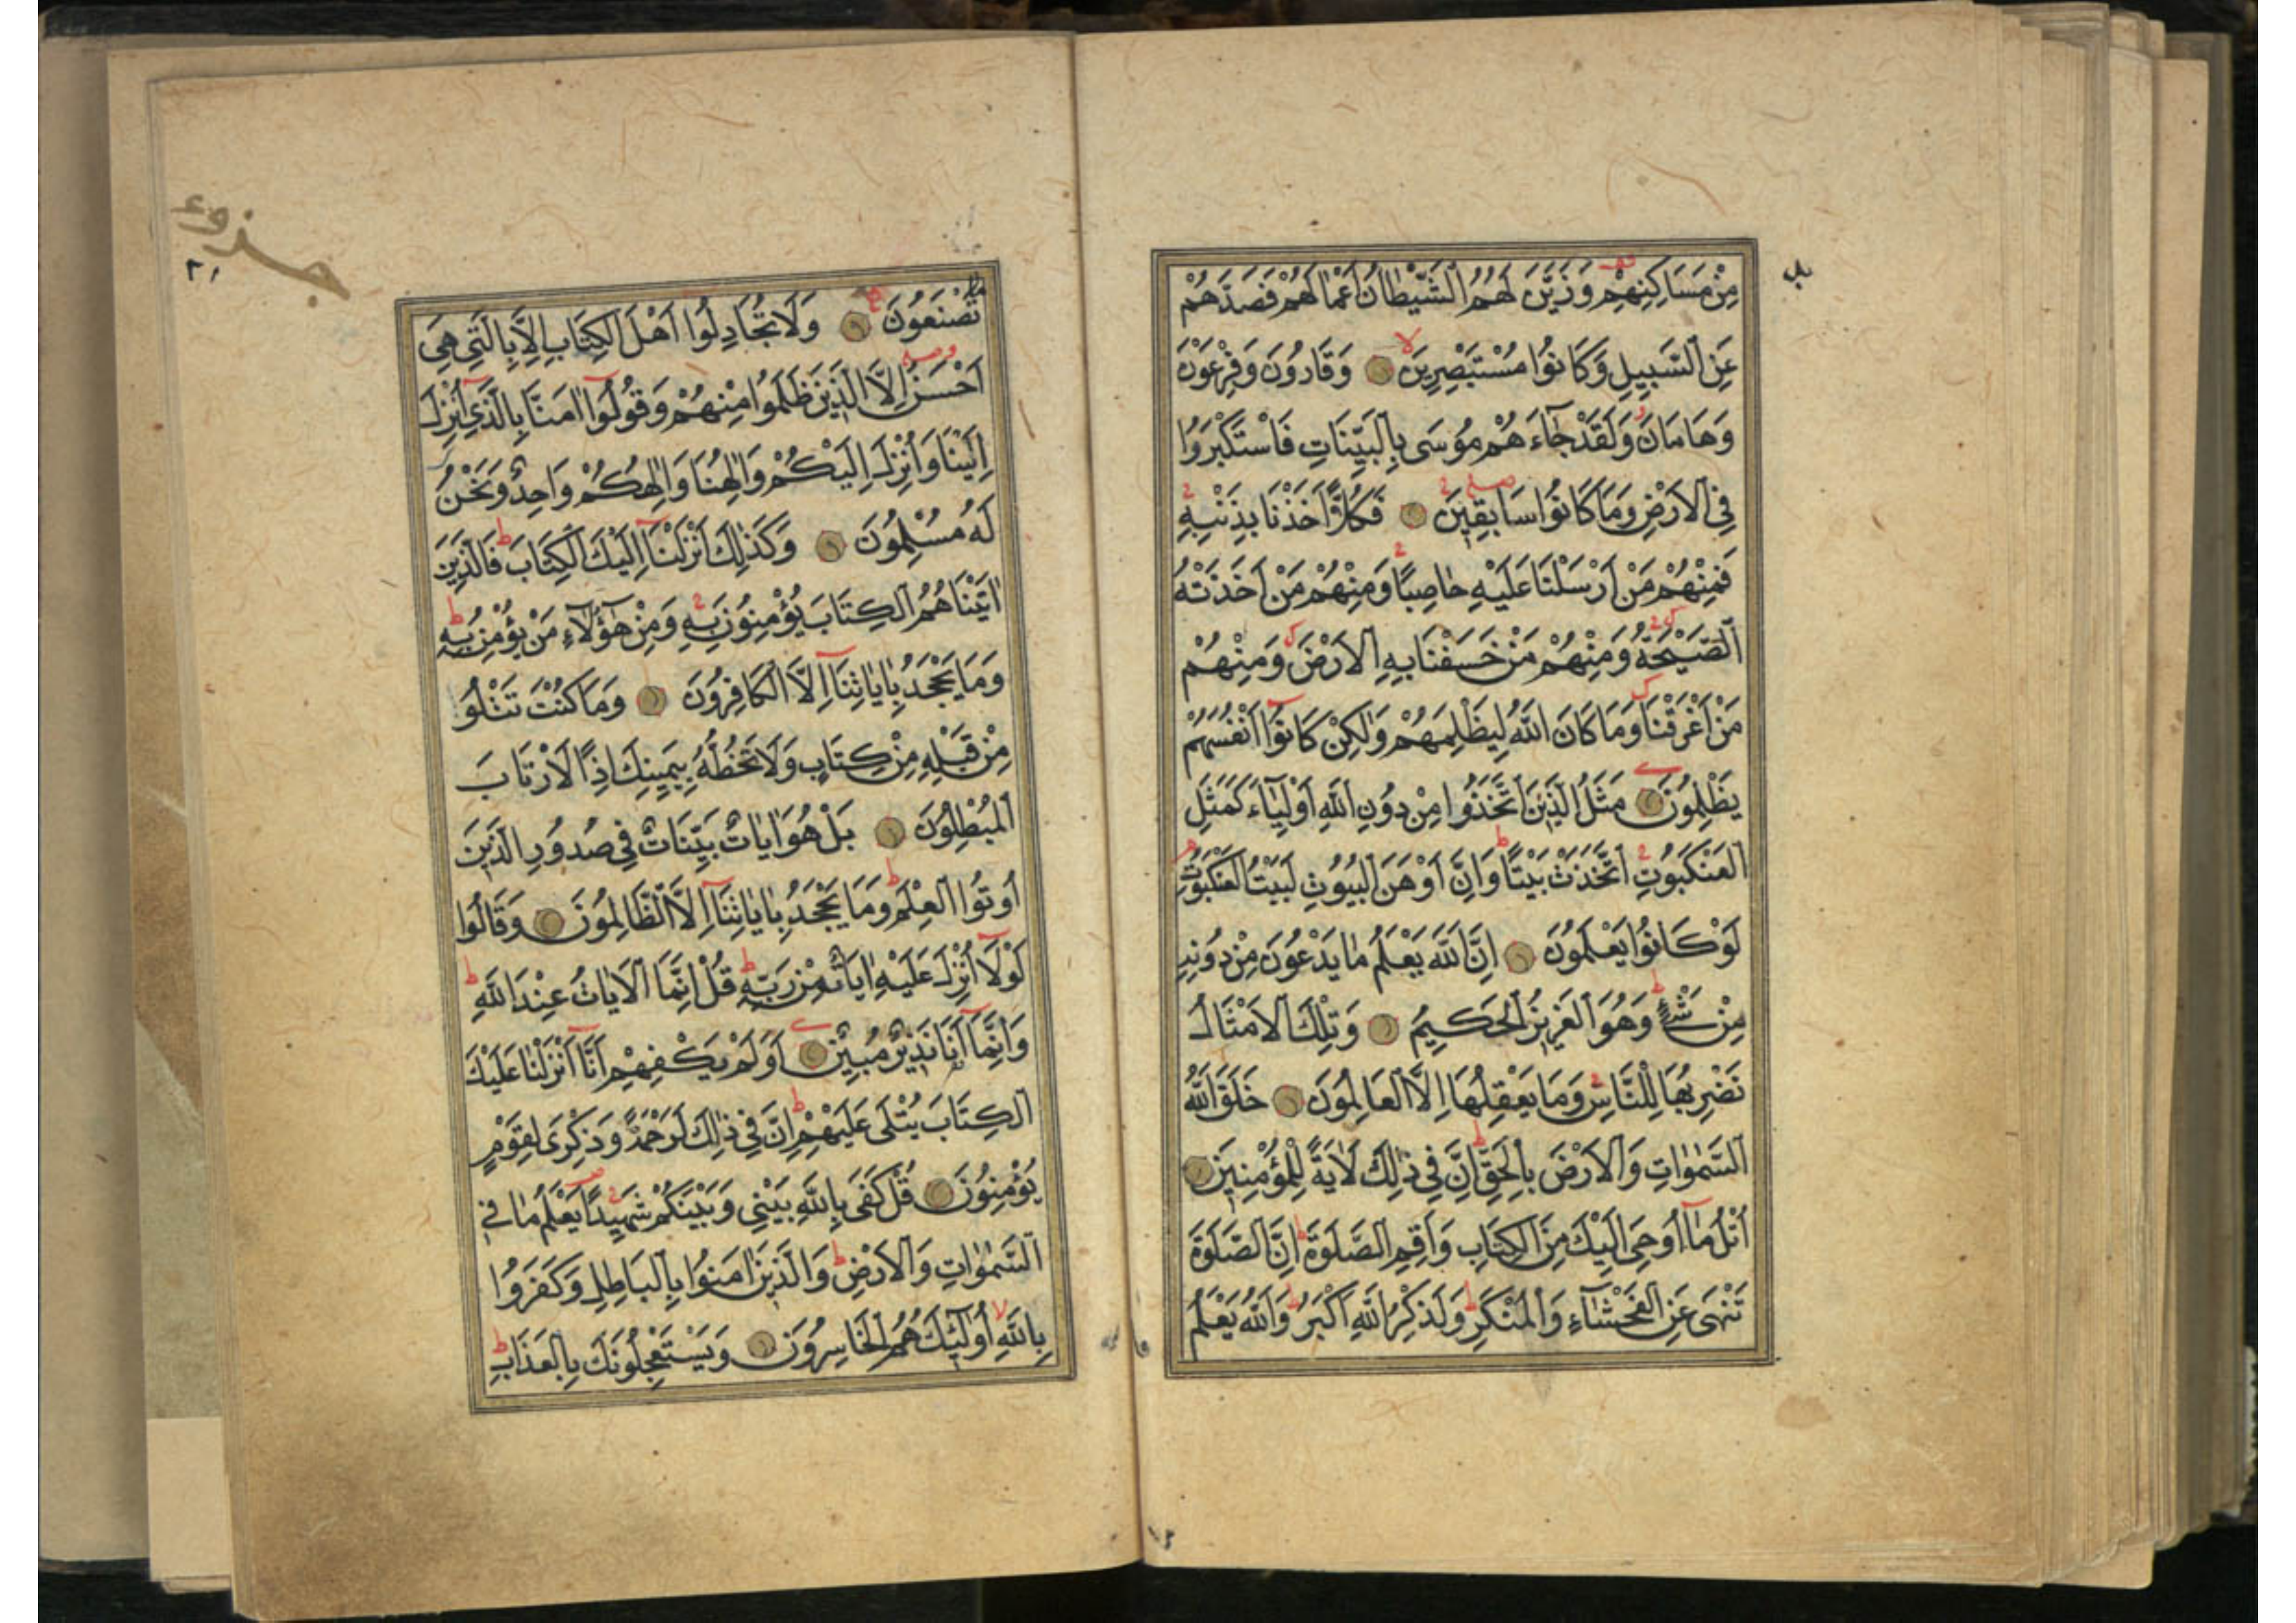 مِنْ مَسَاكِنِهِمْ وَزَيَّنَ لَهُمُ الشَّيْطَانُ اَعْمَالَهُمْ فَصَدَّهُمْ
عَنِ السَّبِيلِ وَكَانُوا مُسْتَبْصِرِينَ وَقَارُونَ وَفِرْعَوْنَ
وَهَامَانَ وَلَقَدْ جَاءَهُمْ مُوسَى بِالْبَيِّنَاتِ فَاسْتَكْبَرُوا
فِي الْاَرْضِ وَمَا كَانُوا سَابِقِينَ فَكُلًّا اَخَذْنَا بِذَنْبِهِ
فَمِنْهُمْ مَنْ اَرْسَلْنَا عَلَيْهِ حَاصِبًا وَمِنْهُمْ مَنْ اَخَذَتْهُ
الصَّيْحَةُ وَمِنْهُمْ مَنْ خَسَفْنَا بِهِ الْاَرْضَ وَمِنْهُمْ
مَنْ اَغْرَقْنَا وَمَا كَانَ اللّٰهُ لِيَظْلِمَهُمْ وَلٰكِنْ كَانُوا اَنْفُسَهُمْ
يَظْلِمُونَ مَثَلُ الَّذِينَ اتَّخَذُوا مِنْ دُونِ اللّٰهِ اَوْلِيَاءَ كَمَثَلِ
الْعَنْكَبُوتِ اتَّخَذَتْ بَيْتًا وَاِنَّ اَوْهَنَ الْبُيُوتِ لَبَيْتُ الْعَنْكَبُوتِ
لَوْ كَانُوا يَعْلَمُونَ اِنَّ اللّٰهَ يَعْلَمُ مَا يَدْعُونَ مِنْ دُونِهِ
مِنْ شَيْءٍ وَهُوَ الْعَزِيزُ الْحَكِيمُ وَتِلْكَ الْاَمْثَالُ
نَضْرِبُهَا لِلنَّاسِ وَمَا يَعْقِلُهَا اِلَّا الْعَالِمُونَ خَلَقَ اللّٰهُ
السَّمٰوَاتِ وَالْاَرْضَ بِالْحَقِّ اِنَّ فِي ذٰلِكَ لَاٰيَةً لِلْمُؤْمِنِينَ
اُتْلُ مَا اُوحِيَ اِلَيْكَ مِنَ الْكِتَابِ وَاَقِمِ الصَّلٰوةَ اِنَّ الصَّلٰوةَ
تَنْهَى عَنِ الْفَحْشَاءِ وَالْمُنْكَرِ وَلَذِكْرُ اللّٰهِ اَكْبَرُ وَاللّٰهُ يَعْلَمُ
جزوء
٢١
مَا
تَصْنَعُونَ وَلَا تُجَادِلُوا اَهْلَ الْكِتَابِ اِلَّا بِالَّتِي هِيَ
اَحْسَنُ اِلَّا الَّذِينَ ظَلَمُوا مِنْهُمْ وَقُولُوا اٰمَنَّا بِالَّذِي اُنْزِلَ
اِلَيْنَا وَاُنْزِلَ اِلَيْكُمْ وَاِلٰهُنَا وَاِلٰهُكُمْ وَاحِدٌ وَنَحْنُ
لَهُ مُسْلِمُونَ وَكَذٰلِكَ اَنْزَلْنَا اِلَيْكَ الْكِتَابَ فَالَّذِينَ
اٰتَيْنَاهُمُ الْكِتَابَ يُؤْمِنُونَ بِهِ وَمِنْ هٰؤُلَاءِ مَنْ يُؤْمِنُ بِهِ
وَمَا يَجْحَدُ بِاٰيَاتِنَا اِلَّا الْكَافِرُونَ وَمَا كُنْتَ تَتْلُو
مِنْ قَبْلِهِ مِنْ كِتَابٍ وَلَا تَخُطُّهُ بِيَمِينِكَ اِذًا لَارْتَابَ
الْمُبْطِلُونَ بَلْ هُوَ اٰيَاتٌ بَيِّنَاتٌ فِي صُدُورِ الَّذِينَ
اُوتُوا الْعِلْمَ وَمَا يَجْحَدُ بِاٰيَاتِنَا اِلَّا الظَّالِمُونَ وَقَالُوا
لَوْلَا اُنْزِلَ عَلَيْهِ اٰيَاتٌ مِنْ رَبِّهِ قُلْ اِنَّمَا الْاٰيَاتُ عِنْدَ اللّٰهِ
وَاِنَّمَا اَنَا نَذِيرٌ مُبِينٌ اَوَلَمْ يَكْفِهِمْ اَنَّا اَنْزَلْنَا عَلَيْكَ
الْكِتَابَ يُتْلَى عَلَيْهِمْ اِنَّ فِي ذٰلِكَ لَرَحْمَةً وَذِكْرَى لِقَوْمٍ
يُؤْمِنُونَ قُلْ كَفَى بِاللّٰهِ بَيْنِي وَبَيْنَكُمْ شَهِيدًا يَعْلَمُ مَا فِي
السَّمٰوَاتِ وَالْاَرْضِ وَالَّذِينَ اٰمَنُوا بِالْبَاطِلِ وَكَفَرُوا
بِاللّٰهِ اُولٰئِكَ هُمُ الْخَاسِرُونَ وَيَسْتَعْجِلُونَكَ بِالْعَذَابِ